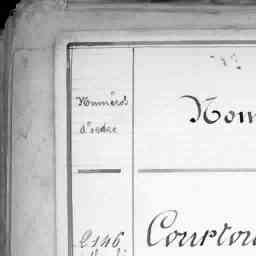 Numéros
d'ordre
Nom
2146
Courtou